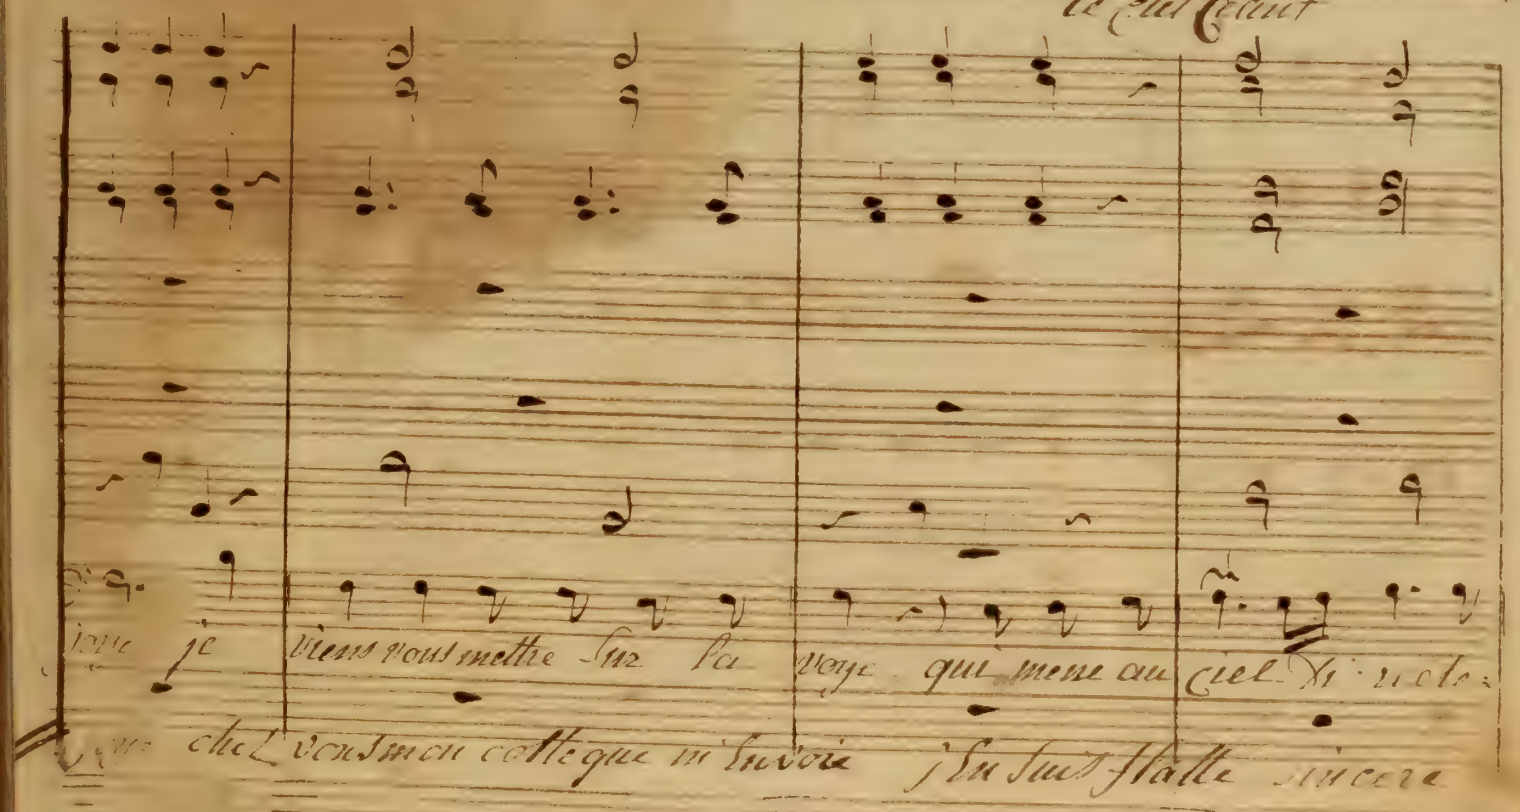 je viens vous mettre Sur la voye qui mene au Ciel
chez vous mon collegue m'Envoie j'En Suis flatté sincere